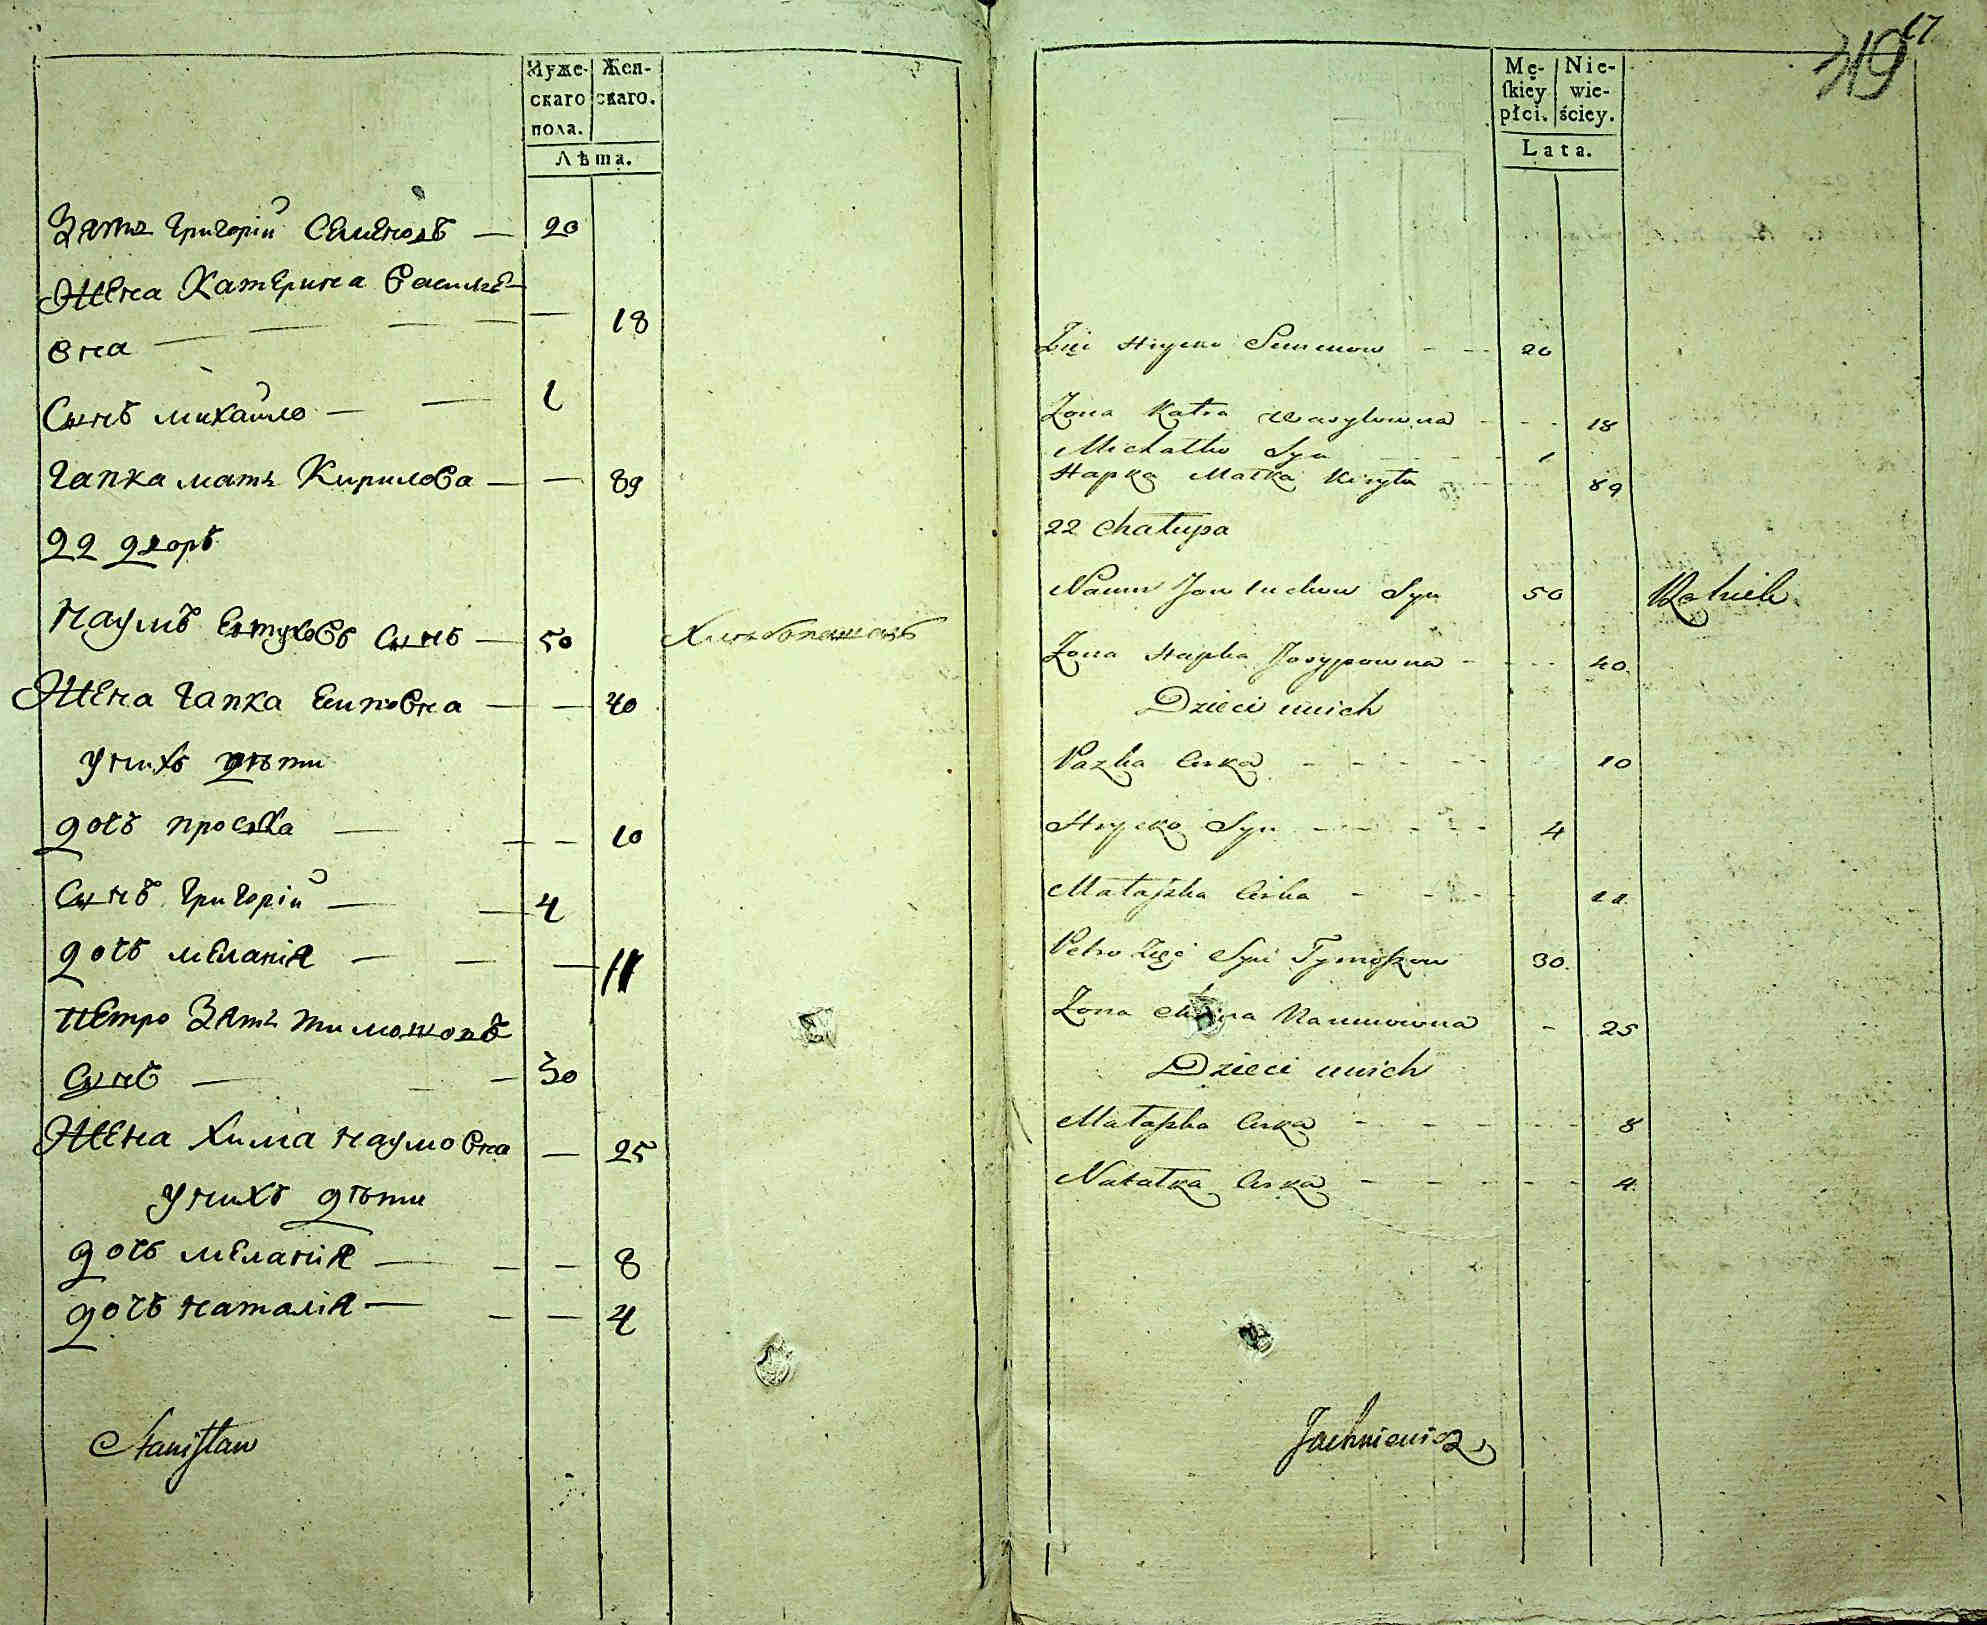 Муже-
скаго
пола.
Жен-
скаго.
Лѣта.
Зять Григорій Семеновъ — 20
Жена Катерина Василье-
вна — 18
Сынъ михайло — 1
гапка мать Кирилова — 89
22 дворъ
Наумъ Евтуховъ Сынъ — 50 Хлѣбопашецъ
Жена гапка Еиповна — 40
У нихъ дѣти
дочъ проска — 10
Сынъ Григорій — 4
дочъ меланія — 11
петро Зять тимошовъ
Сынъ — 30
Жена Хима наумовна — 25
У нихъ дѣти
дочъ меланія — 8
дочъ наталія — 4
Stanisław
17
419
Mę-
skiey
płci.
Nie-
wie-
ściey.
Lata.
Zięć Hrycko Semenow - - 20
Zona Katra Wasylowna - - - 18
Michałko Syn - - - 1
Hapka Matka Kiryła - - - 89
22 Chałupa
Naum Jowtuchow Syn 50 Rolnik
Zona Hapka Josypowna - - - 40
Dzieci unich
Pazka Curka - - - - 10
Hrycko Syn - - - - 4
Małaszka Curka - - - 11
Petro Zięć Syn Tymoszow 30
Zona Chima Naumowna - 25
Dzieci unich
Małaszka Curka - - - - 8
Natałka Curka - - - - 4
Jachniewicz